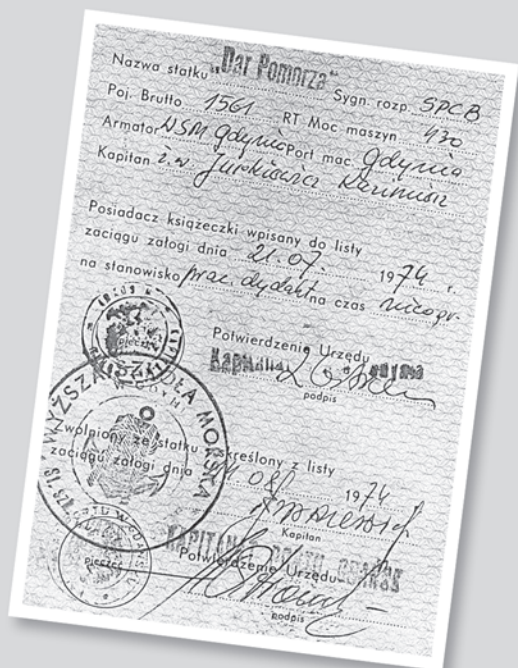 Nazwa statku „Dar Pomorza" Sygn. rozp. SPCB
Poj. Brutto 1561 RT Moc maszyn 430
Armator WSM Gdynia Port mac. Gdynia
Kapitan ż.w. Jurkiewicz Kazimierz
Posiadacz książeczki wpisany do listy
zaciągu załogi dnia 21.07. 1974 r.
na stanowisko prac. dydakt na czas nieogr.
Potwierdzenie Urzędu
podpis
WYŻSZA SZKOŁA MORSKA
Zwolniony ze statku skreślony z listy
zaciągu załogi dnia 08 1974 r.
Kapitan
KAPITANAT PORTU GDAŃSK
Potwierdzenie Urzędu
pieczęć
podpis